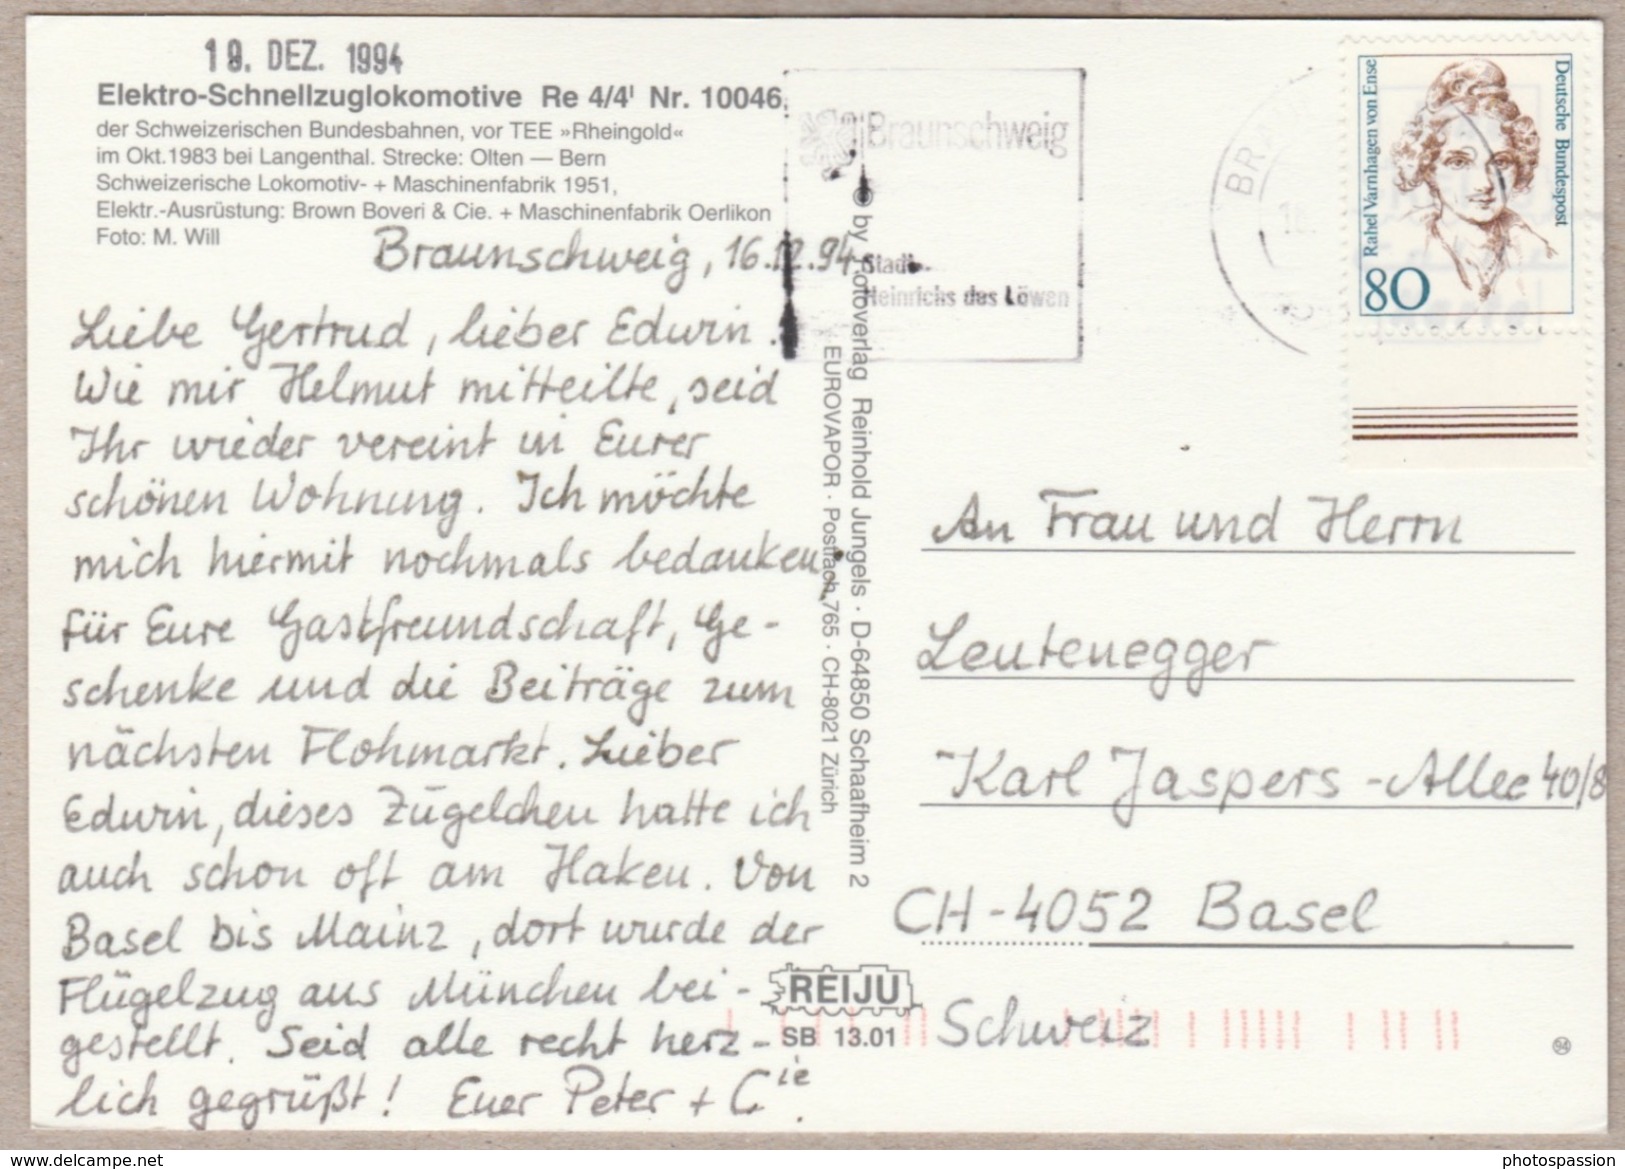 19. DEZ. 1994
Elektro-Schnellzuglokomotive Re 4/4ᴵ Nr. 10046,
der Schweizerischen Bundesbahnen, vor TEE »Rheingold«
im Okt.1983 bei Langenthal. Strecke: Olten — Bern
Schweizerische Lokomotiv- + Maschinenfabrik 1951,
Elektr.-Ausrüstung: Brown Boveri & Cie. + Maschinenfabrik Oerlikon
Foto: M. Will
Braunschweig, 16.12.94
Liebe Gertrud, lieber Edwin.
Wie mir Helmut mitteilte, seid
Ihr wieder vereint in Eurer
schönen Wohnung. Ich möchte
mich hiermit nochmals bedanken,
für Eure Gastfreundschaft, Ge-
schenke und die Beiträge zum
nächsten Flohmarkt. Lieber
Edwin, dieses Zügelchen hatte ich
auch schon oft am Haken. Von
Basel bis Mainz, dort wurde der
Flügelzug aus München bei-
gestellt. Seid alle recht herz-
lich gegrüßt! Euer Peter + Cie.
© by Fotoverlag Reinhold Jungels · D-64850 Schaafheim 2
EUROVAPOR · Postfach 765 · CH-8021 Zürich
REIJU
SB 13.01
Braunschweig
Stadt
Heinrichs des Löwen
Deutsche Bundespost
Rahel Varnhagen von Ense
80
An Frau und Herrn
Leutenegger
Karl Jaspers-Allee 40/8
CH-4052 Basel
Schweiz
94
www.delcampe.net
photospassion